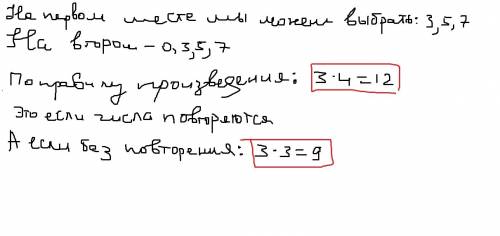 На первом месте мы можем выбрать: 3, 5, 7
На втором - 0, 3, 5, 7
По правилу произведения: 3·4=12
Это если числа повторяются
А если без повторения: 3·3=9